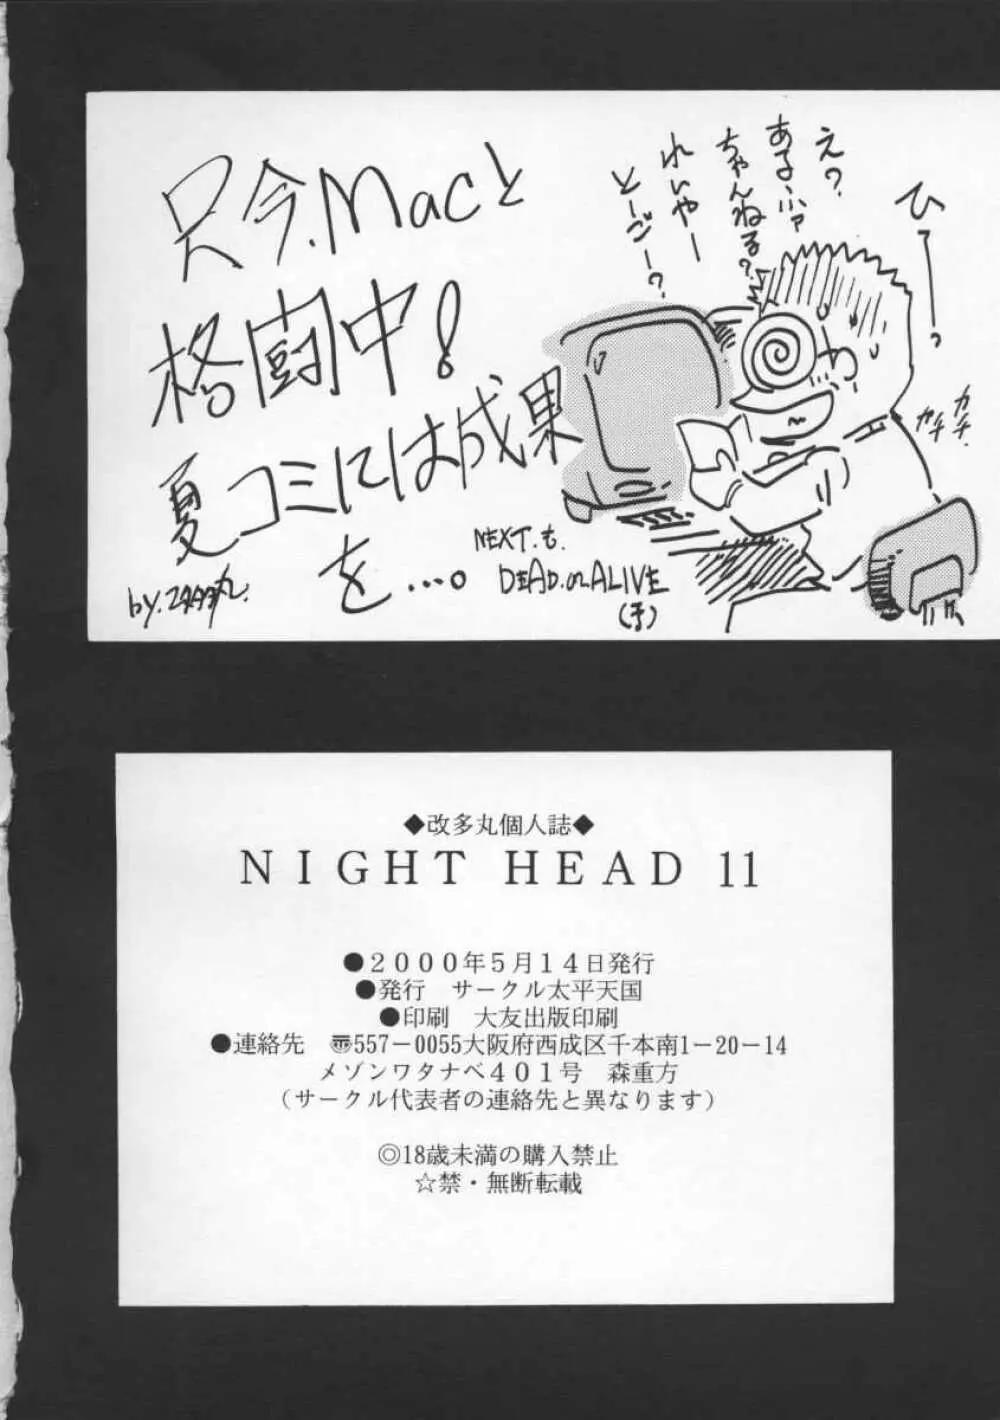 只今.Macと
格闘中!
夏コミには成果
を…。
NEXT.も.
DEAD.orALIVE
(予)
え?
あるふァ
ちゃんねる?
れいやー
とーごー?
ひーっ
カチ
カチ
◆改多丸個人誌◆
NIGHT HEAD 11
●2000年5月14日発行
●発行 サークル太平天国
●印刷 大友出版印刷
●連絡先 〠557-0055大阪府西成区千本南1-20-14
メゾンワタナベ401号 森重方
(サークル代表者の連絡先と異なります)
◎18歳未満の購入禁止
☆禁・無断転載